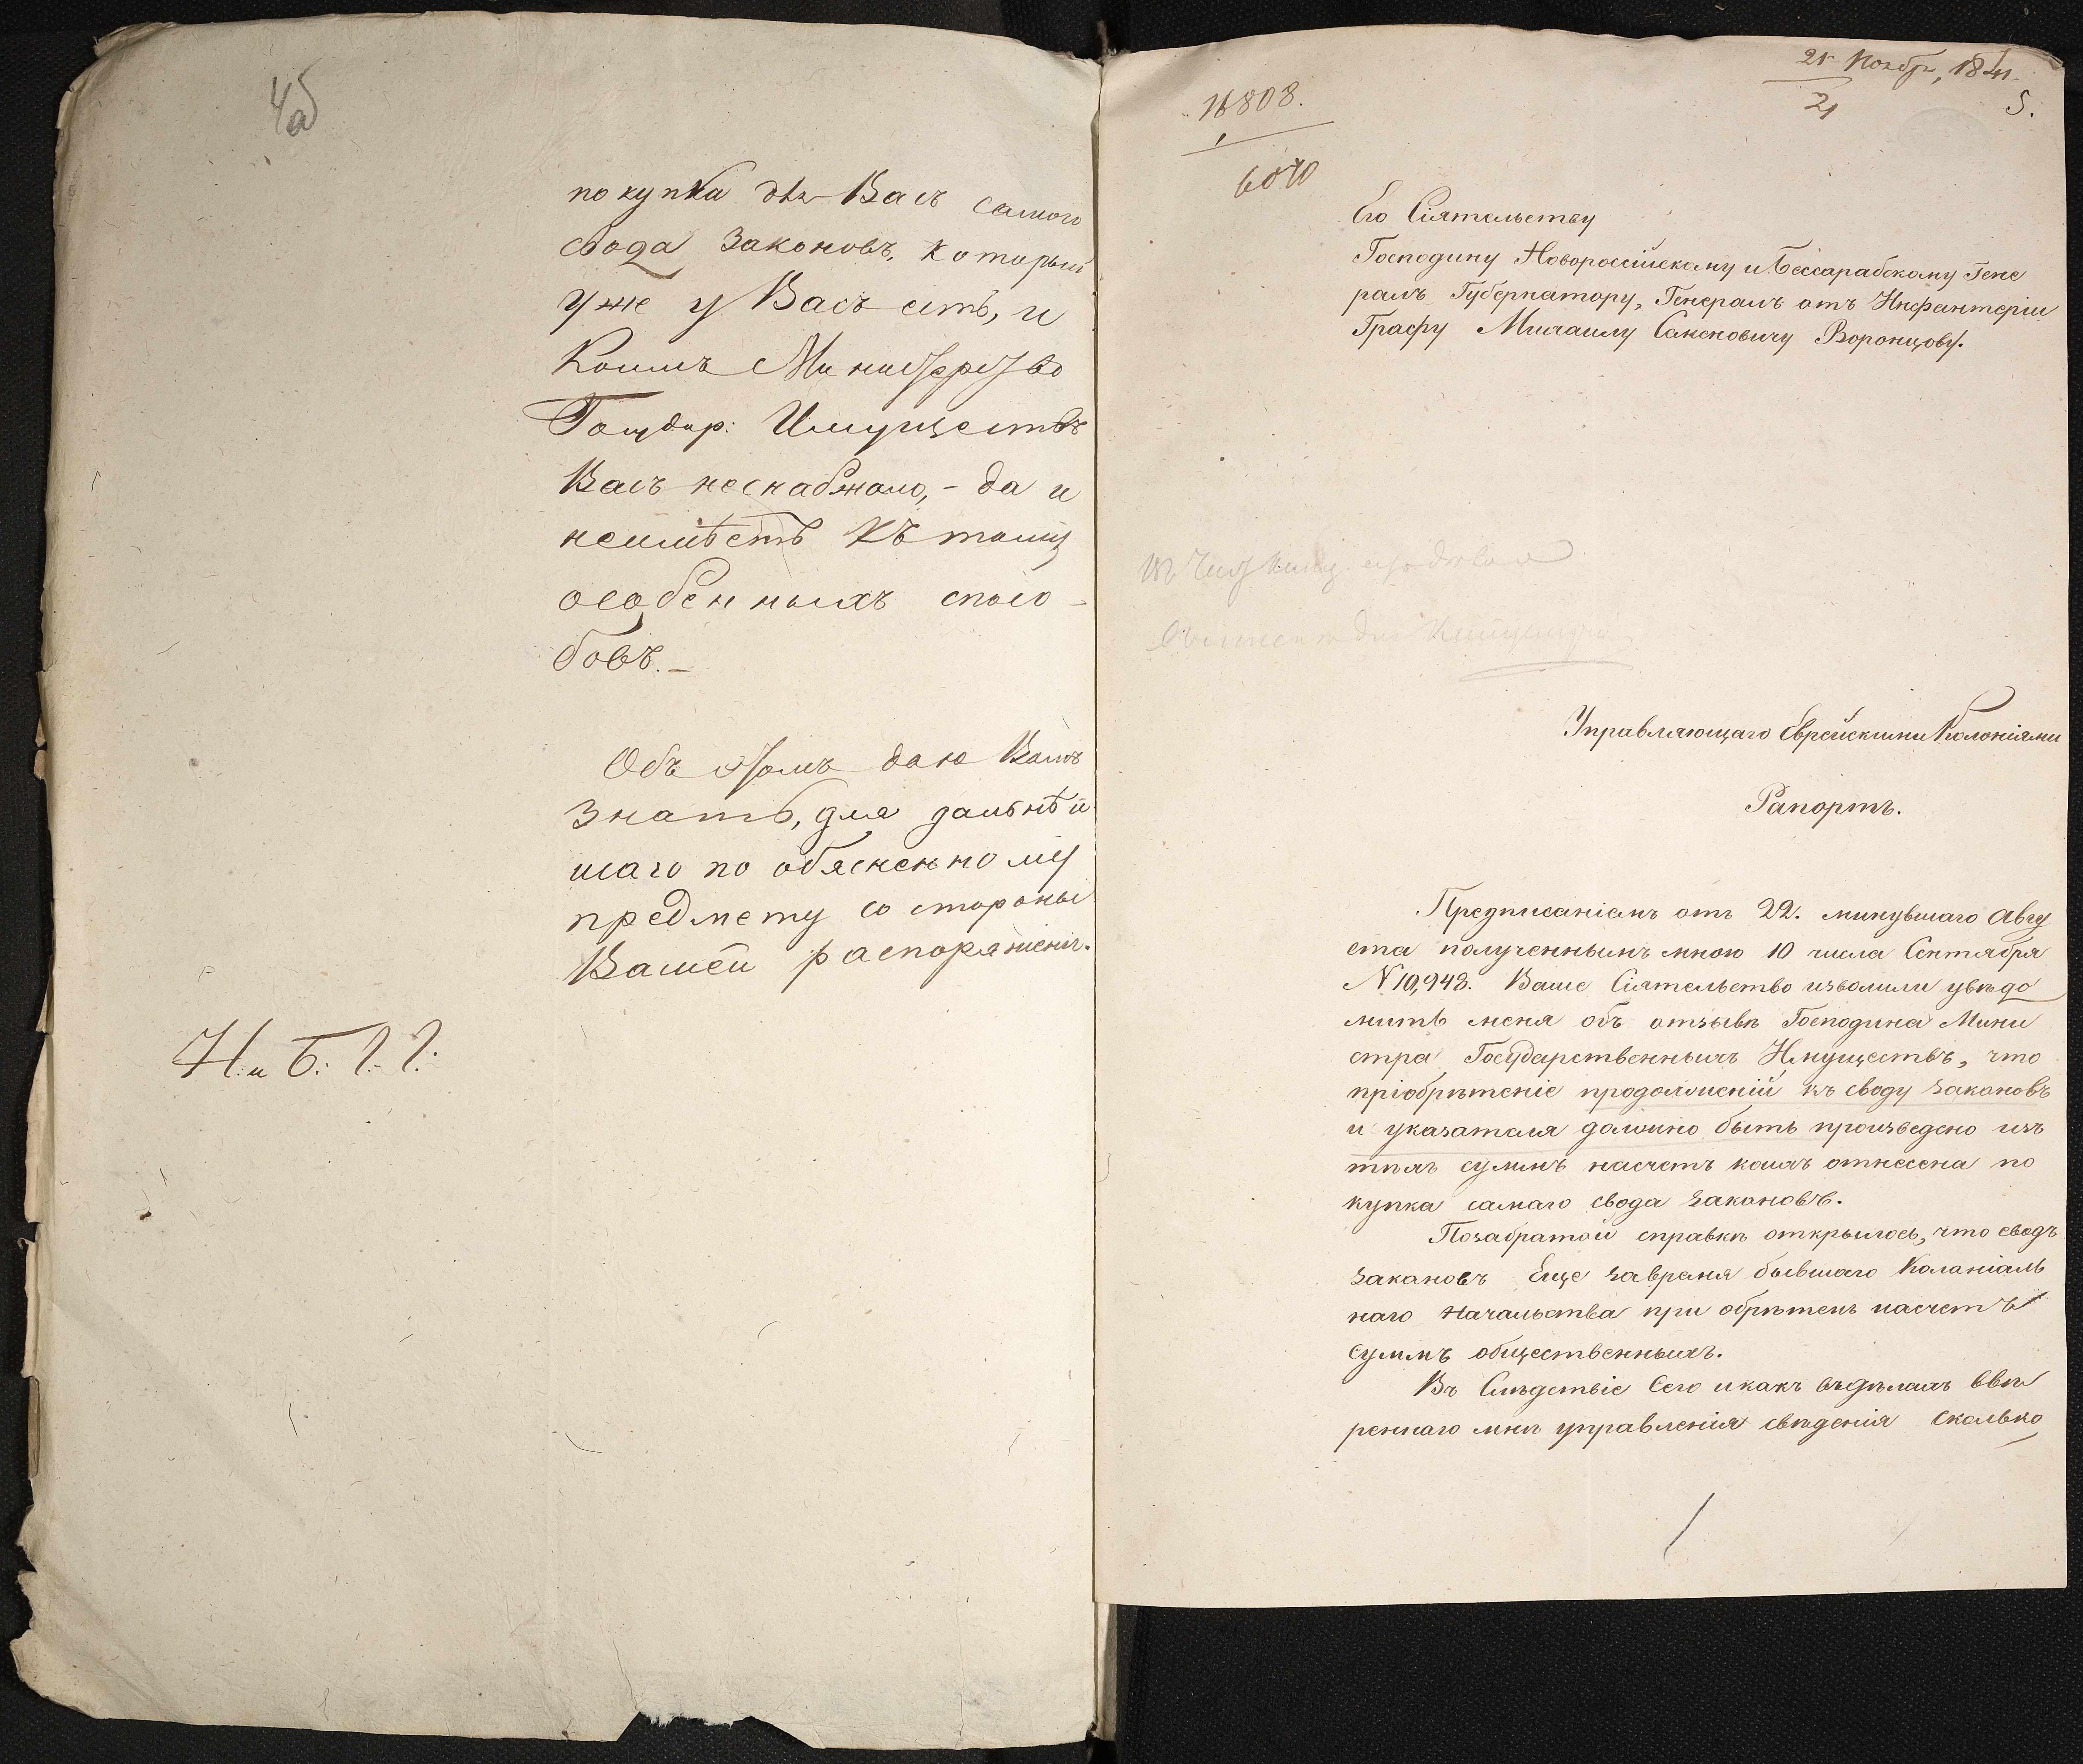 4об
покупка для Васъ самого
свода Законовъ, который
уже у Васъ есть, и
Коимъ Министерство
Государ: Имуществъ
Васъ неснабжало, - да и
неимѣетъ къ тому
особенныхъ спосо-
бовъ. -
Объ этомъ даю Вамъ
знать, для дальнѣй
шаго по обясненному
предмету со стороны
Вашей распоряженія.
Н. и Б. Г. Г.
21 Ноябр, 1841.
21
5.
16808.
6070
Его Сіятельству
Господину Новороссійскому и Бессарабскому Гене
ралъ Губернатору, Генералъ отъ Инфантеріи
Графу Михаилу Семеновичу Воронцову.
Управляющаго Еврейскими Колоніями
Рапортъ.
Предписаніемъ отъ 22. минувшаго Авгу
ста полученнымъ мною 10 числа Сентября
N 10,948. Ваше Сіятельство изволили увѣдо
мить меня объ отзывѣ Господина Мини
стра Государственныхъ Имуществъ, что
пріобрѣтеніе продолженій къ своду закановъ
и указателя должно быть произведено изъ
тѣхъ суммъ насчетъ коихъ отнесена по
купка самаго свода закановъ.
Позабратой справкѣ открылось, что сводъ
закановъ Еще завремя бывшаго Колоніаль
наго Начальства при обрѣтенъ насчетъ
суммъ общественныхъ.
Въ Слѣдствіе Сего и какъ въ дѣлахъ ввѣ
реннаго мнѣ управленія свѣденія сколько